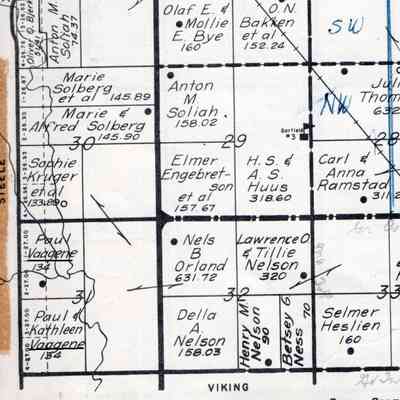 Olaf E. &
Mollie
E. Bye
160
O.N.
Bakken
et al
152.24
SW
Anton M.
Soliah
74.37
Marie
Solberg
et al 145.89
Marie &
Alfred Solberg
145.90
30
Anton
M.
Soliah
158.02
29
NW
Garfield
#3
28
Sophie
Kruger
et al
133.890
Elmer
Engebret-
son
et al
157.67
H.S. &
A. S.
Huus
318.60
Carl &
Anna
Ramstad
STEELE
Paul
Vaagene
134
Nels
B
Orland
631.72
Lawrence O
& Tillie
Nelson
320
32
33
Paul &
Kathleen
Vaagene
134
Della
A.
Nelson
158.03
Henry M.
Nelson
90
Betsey G
Ness 70
Selmer
Heslien
160
VIKING